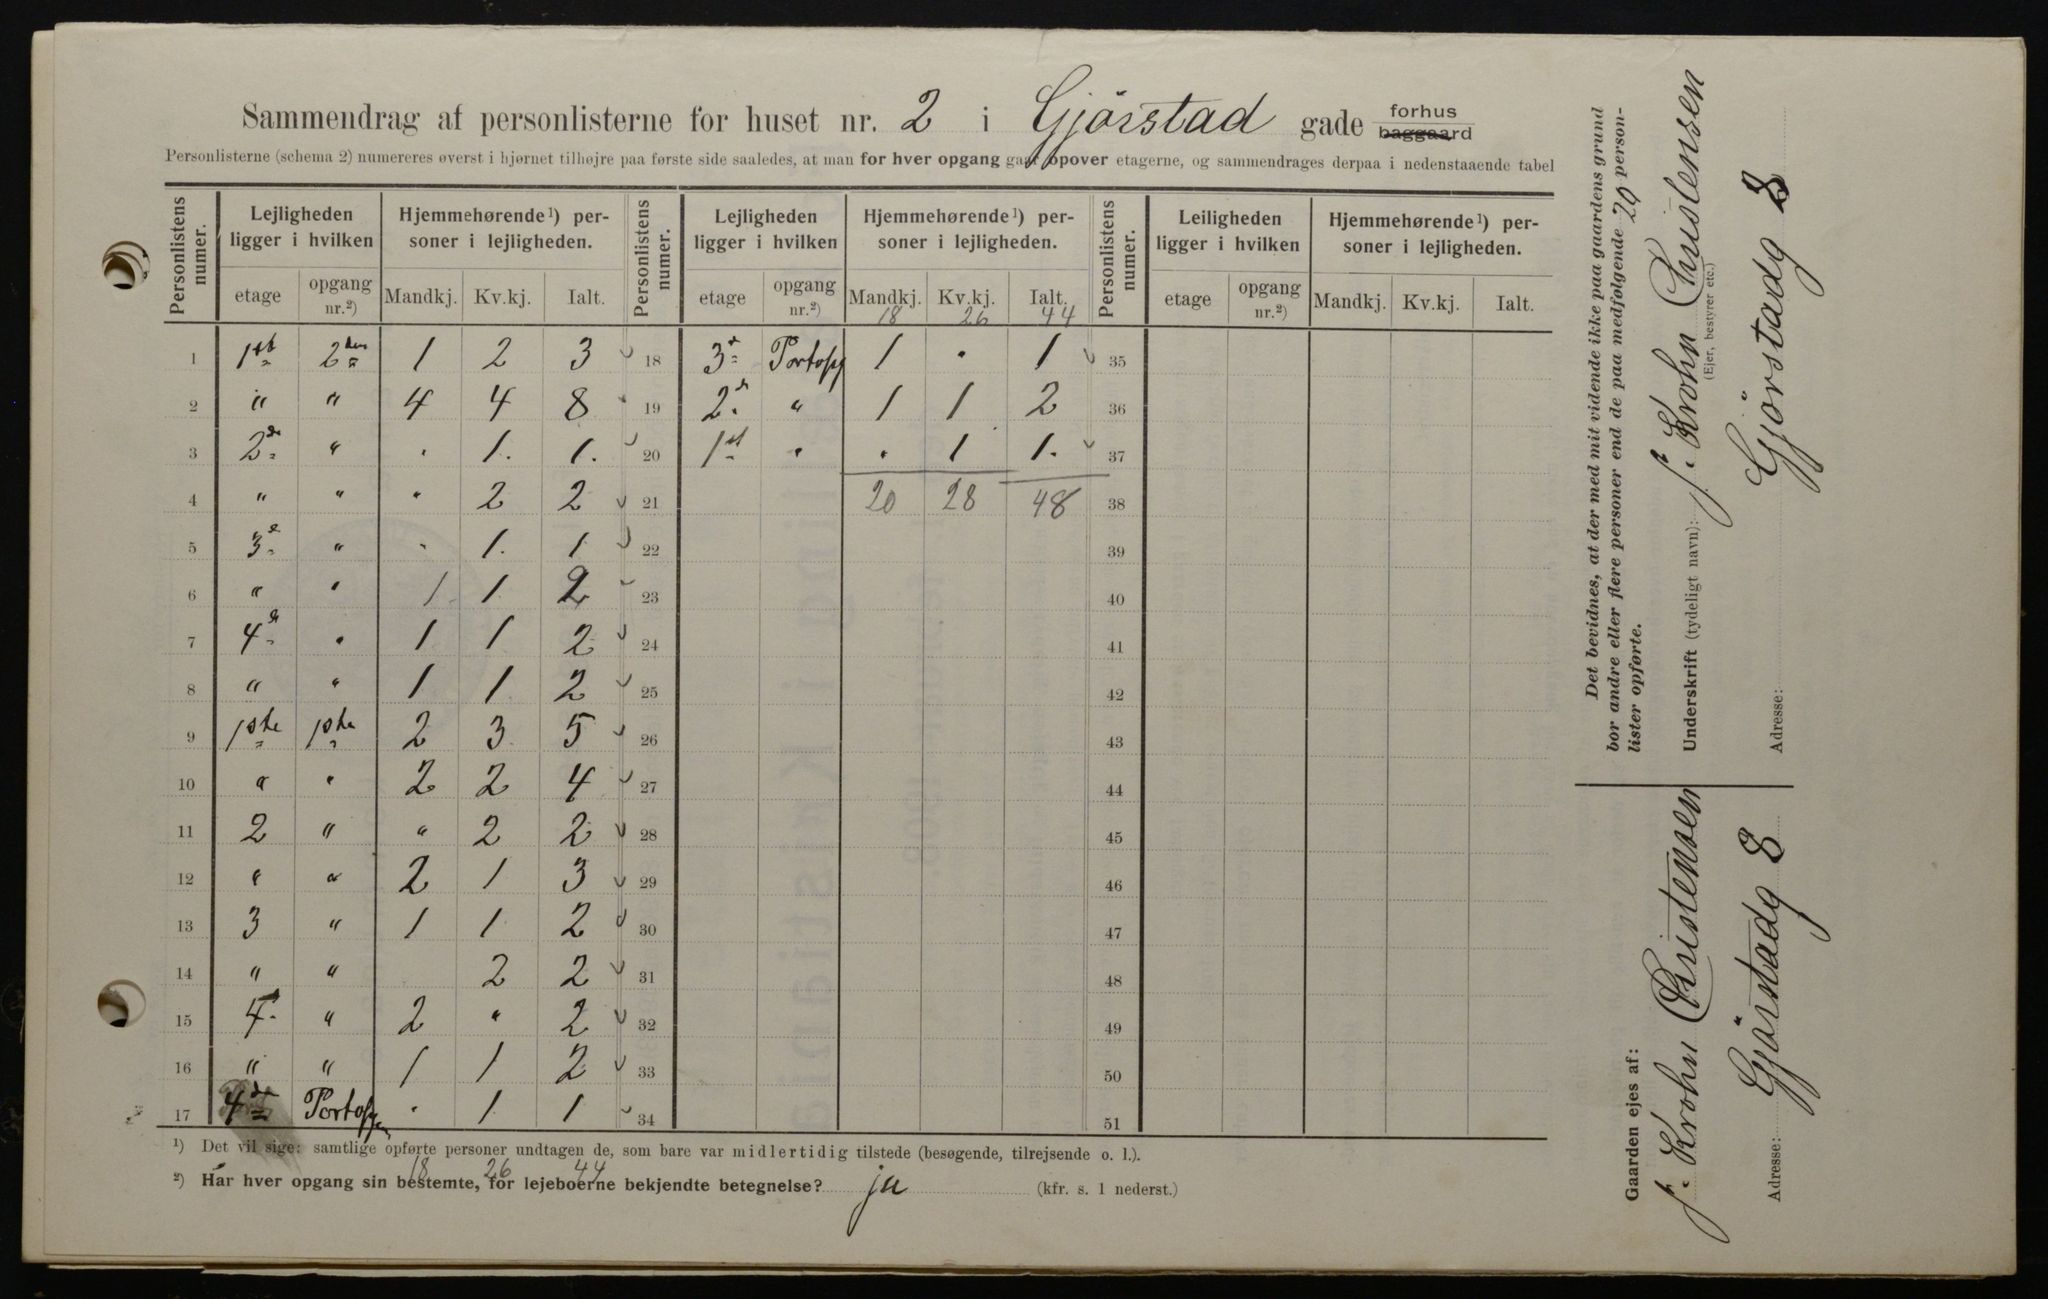 Sammendrag af personlisterne for huset nr. 2 i Gjörstad gade forhus baggaard
Personlisterne (schema 2) numereres øverst i hjørnet tilhøjre paa første side saaledes, at man for hver opgang gaar opover etagerne, og sammendrages derpaa i nedenstaaende tabel
Personlistens numer. Lejligheden ligger i hvilken Hjemmehørende¹) personer i lejligheden. Personlistens numer. Lejligheden ligger i hvilken Hjemmehørende¹) personer i lejligheden. Personlistens numer. Leiligheden ligger i hvilken Hjemmehørende¹) personer i lejligheden.
etage opgang nr.²) Mandkj. Kv.kj. Ialt. etage opgang nr.²) Mandkj. Kv.kj. Ialt. etage opgang nr.²) Mandkj. Kv.kj. Ialt.
18 26 44
1 1st 2den 1 2 3 18 3d Portopg 1 " 1 35
2 " " 4 4 8 19 2d " 1 1 2 36
3 2d " " 1. 1. 20 1st " " 1 1. 37
4 " " " 2 2 21 20 28 48 38
5 3d " " 1. 1 22 39
6 " " 1 1 2 23 40
7 4d " 1 1 2 24 41
8 " " 1 1 2 25 42
9 1ste 1ste 2 3 5 26 43
10 " " 2 2 4 27 44
11 2 " " 2 2 28 45
12 " " 2 1 3 29 46
13 3 " 1 1 2 30 47
14 " " 2 2 31 48
15 4. " 2 " 2 32 49
16 " " 1 1 2 33 50
17 4de Portopgn " 1 1 34 51
¹) Det vil sige: samtlige opførte personer undtagen de, som bare var midlertidig tilstede (besøgende, tilrejsende o. l.).
18 26 44
²) Har hver opgang sin bestemte, for lejeboerne bekjendte betegnelse? ja (kfr. s. 1 nederst.)
Det bevidnes, at der med mit vidende ikke paa gaardens grund
bor andre eller flere personer end de paa medfølgende 20 person-
lister opførte.
Underskrift (tydeligt navn): J. Krohn Christensen
(Ejer, bestyrer etc.)
Adresse: Gjörstadg 8
Gaarden ejes af:
J. Krohn Christensen
Adresse: Gjörstadg 8